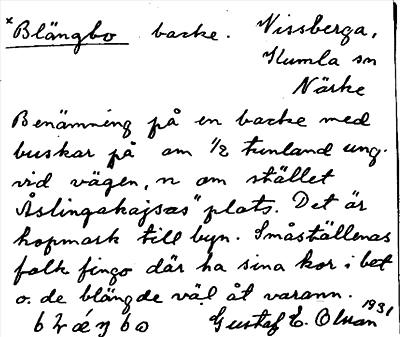 *Blängbo backe. Vissberga,
Kumla sn
Närke
Benämning på en backe med
buskar på om 1/2 tunland ung.
vid vägen, n om stället
"Åslingakajsas" plats. Det är
hopmark till byn. Småställenas
folk fingo där ha sina kor i bet
o. de blängde väl åt varann.
Gustaf E. Olsson 1931